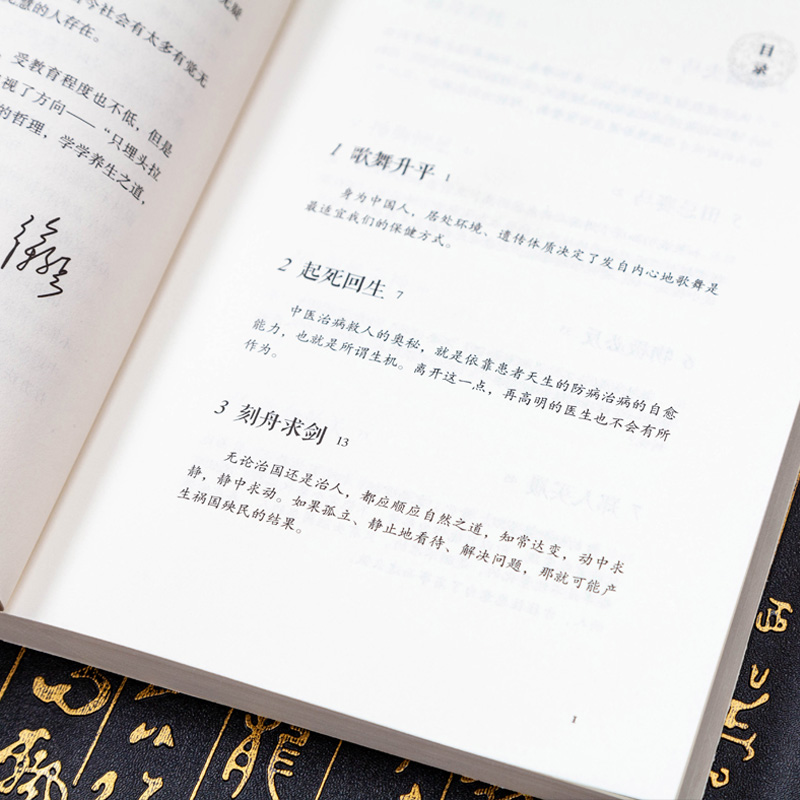 今社会有太多有觉无
慧的人存在。
受教育程度也不低,但是
视了方向——“只埋头拉
的哲理,学学养生之道,
目录
1 歌舞升平 1
身为中国人,居处环境、遗传体质决定了发自内心地歌舞是
最适宜我们的保健方式。
2 起死回生 7
中医治病救人的奥秘,就是依靠患者天生的防病治病的自愈
能力,也就是所谓生机。离开这一点,再高明的医生也不会有所
作为。
3 刻舟求剑 13
无论治国还是治人,都应顺应自然之道,知常达变,动中求
静,静中求动。如果孤立、静止地看待、解决问题,那就可能产
生祸国殃民的结果。
I